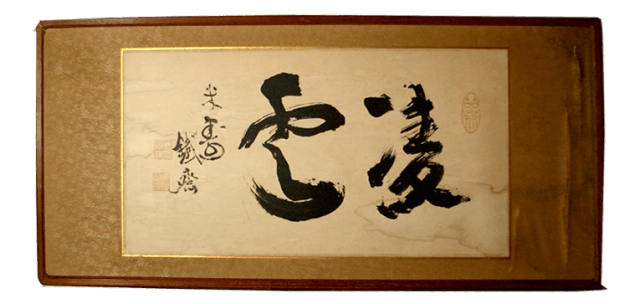 凌雲
米壽
鐵齋